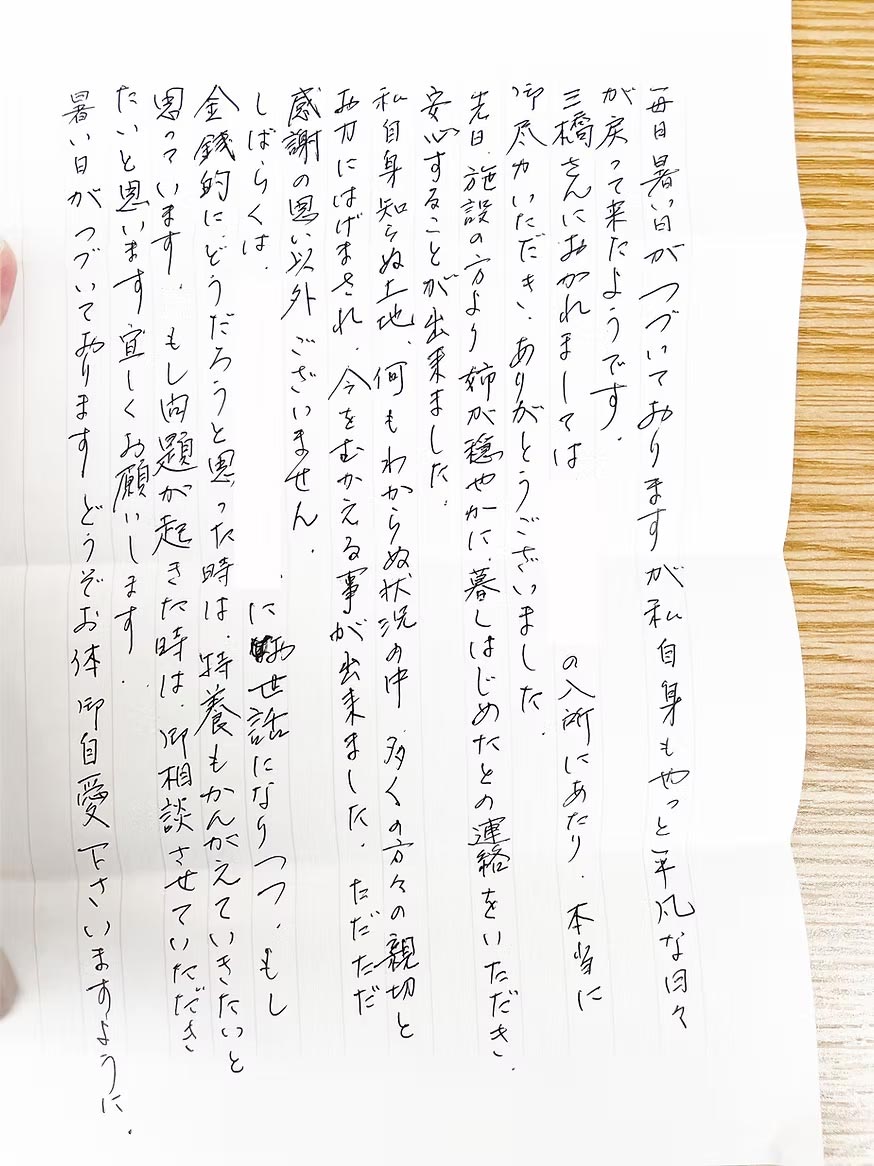 毎日暑い日がつづいておりますが私自身もやっと平凡な日々
が戻って来たようです.
三橋さんにおかれましては の入所にあたり.本当に
御尽力いただき.ありがとうございました.
先日.施設の方より姉が穏やかに.暮しはじめたとの連絡をいただき.
安心することが出来ました.
私自身知らぬ土地.何もわからぬ状況の中多くの方々の親切と
お力にはげまされ.今をむかえる事が出来ました.ただただ
感謝の思い以外ございません.
しばらくは. にお世話になりつつ、もし
金銭的にどうだろうと思った時は.特養もかんがえていきたいと
思っています.もし問題が起きた時は.御相談させていただき
たいと思います宜しくお願いします.
暑い日がつづいておりますどうぞお体御自愛下さいますように.